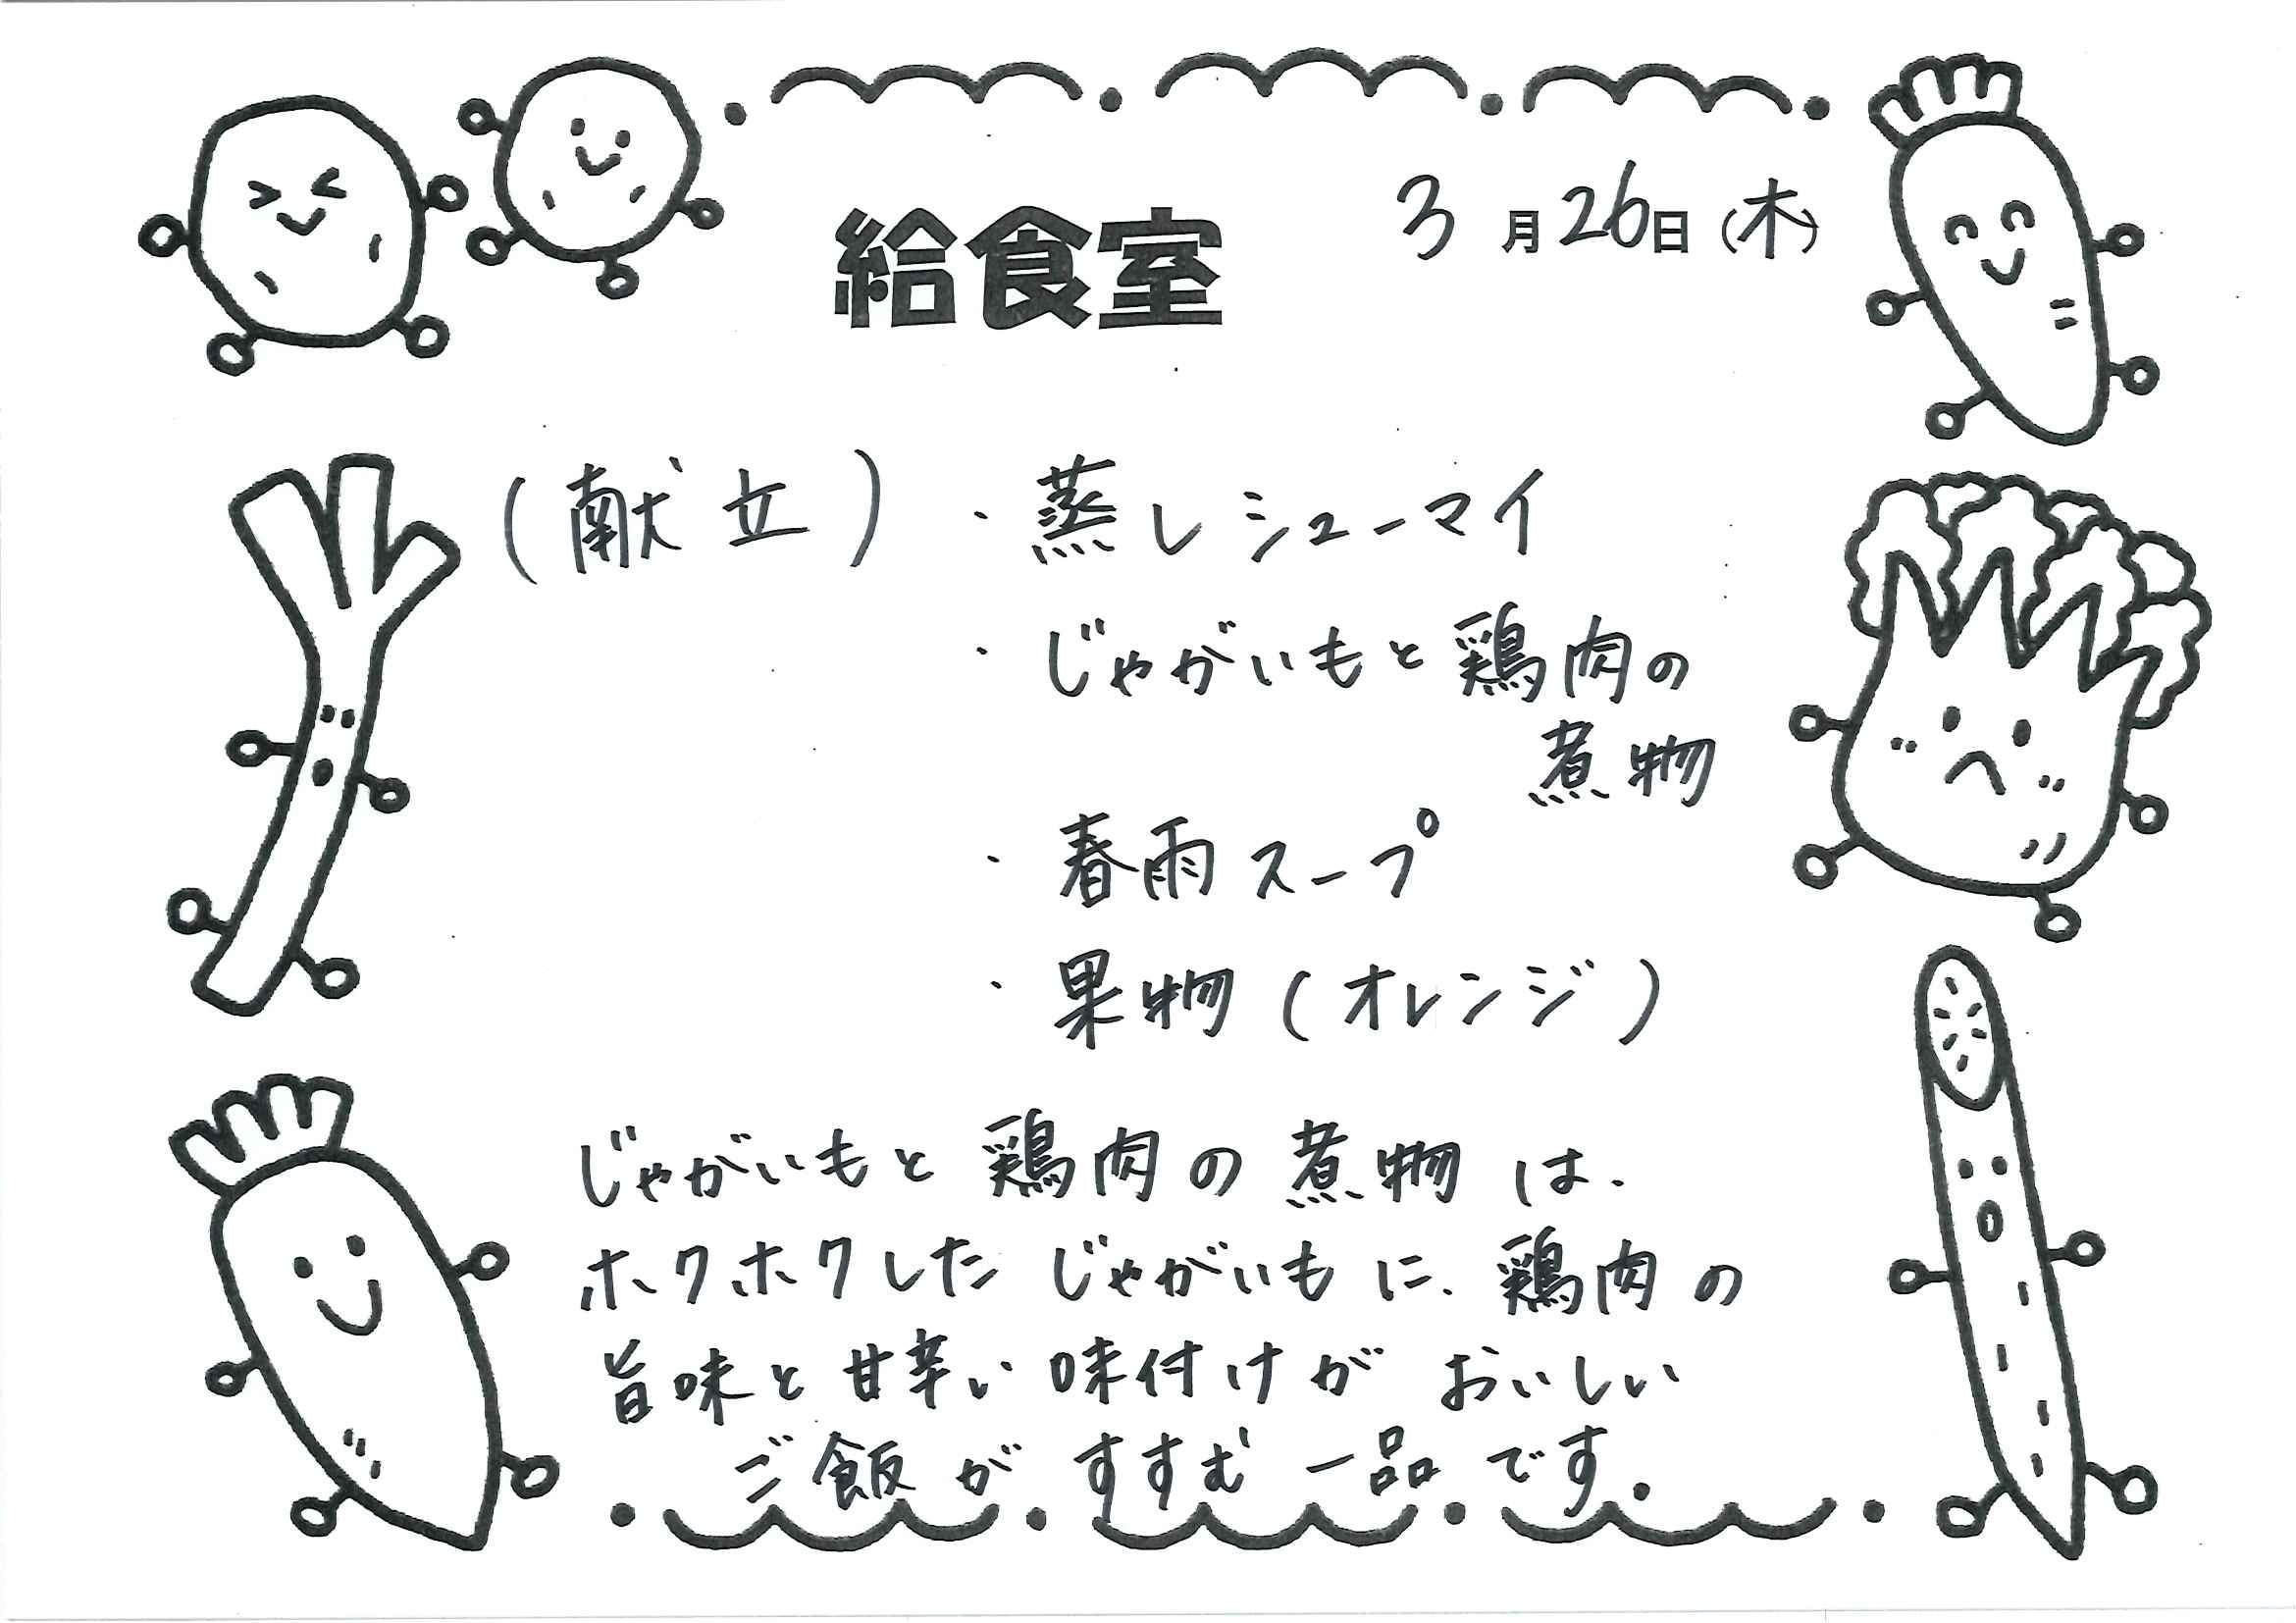 給食室
3月26日(木)
(献立)・蒸しシューマイ
・じゃがいもと鶏肉の
煮物
・春雨スープ
・果物(オレンジ)
じゃがいもと鶏肉の煮物は、
ホクホクしたじゃがいもに、鶏肉の
旨味と甘辛い味付けがおいしい
ご飯がすすむ一品です。